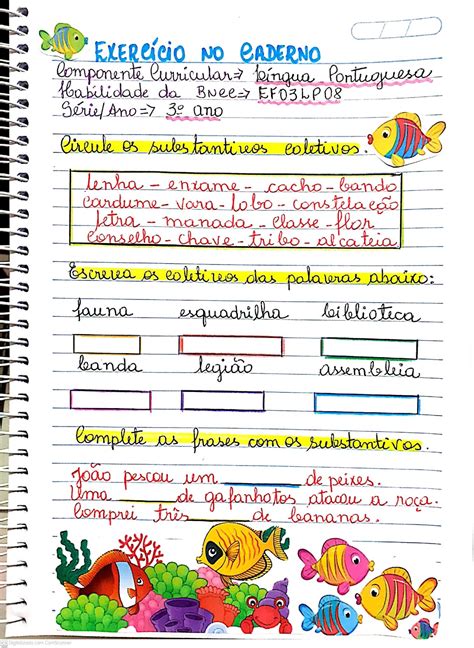 EXERCÍCIO NO CADERNO
Componente Curricular=> Língua Portuguesa
Habilidade da BNCC=> EF03LP08
Série/Ano=> 3º ano
Circule os substantivos coletivos.
lenha - enxame - cacho - bando
cardume - vara - lobo - constelação
letra - manada - classe - flor
conselho - chave - tribo - alcateia
Escreva os coletivos das palavras abaixo:
fauna esquadrilha biblioteca
banda legião assembleia
Complete as frases com os substantivos.
João pescou um ______ de peixes.
Uma ______ de gafanhotos atacou a roça.
Comprei três ______ de bananas.